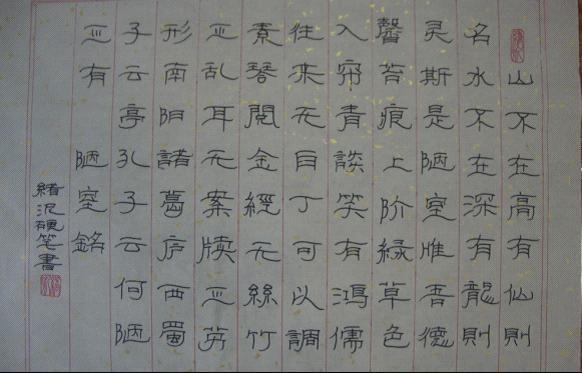 山不在高有仙則
名水不在深有龍則
灵斯是陋室惟吾德
馨苔痕上阶緑草色
入帘青談笑有鴻儒
往来无白丁可以調
素琴閲金經无絲竹
之乱耳无案牍之劳
形南阳諸葛庐西蜀
子云亭孔子云何陋
之有 陋室銘
緒泥硬笔書